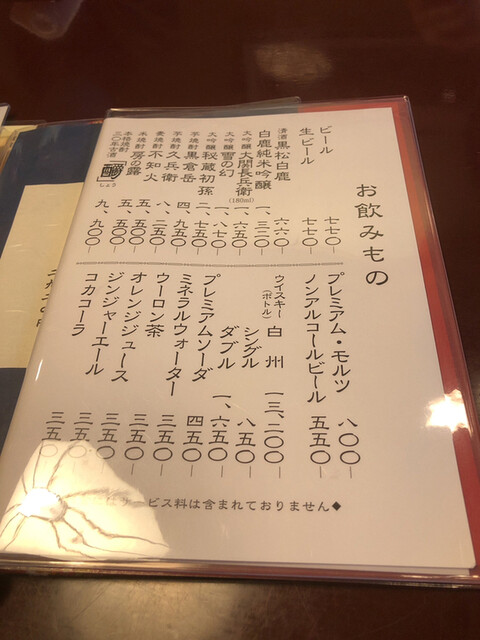 お飲みもの
ビール 七七〇
生ビール 七七〇
清酒 黒松白鹿 六六〇
白鹿純米吟醸 一、三二〇
大吟醸 大関長兵衛(180ml) 一、六五〇
大吟醸 雪の幻 一、八七〇
大吟醸 秘蔵初孫 二、七五〇
芋焼酎 黒倉岳
芋焼酎 久兵衛
麦焼酎 不知火
米焼酎 房の露
本格焼酎 三〇年古酒 しょう 九、九〇〇
プレミアム・モルツ 八〇〇
ノンアルコールビール 五五〇
ウイスキー(ボトル) 白州 一三、二〇〇
シングル 八五〇
ダブル 一、六五〇
プレミアムソーダ 四五〇
ミネラルウォーター 五五〇
ウーロン茶 三五〇
オレンジジュース 三五〇
ジンジャーエール 三五〇
コカコーラ 三五〇
サービス料は含まれておりません◆